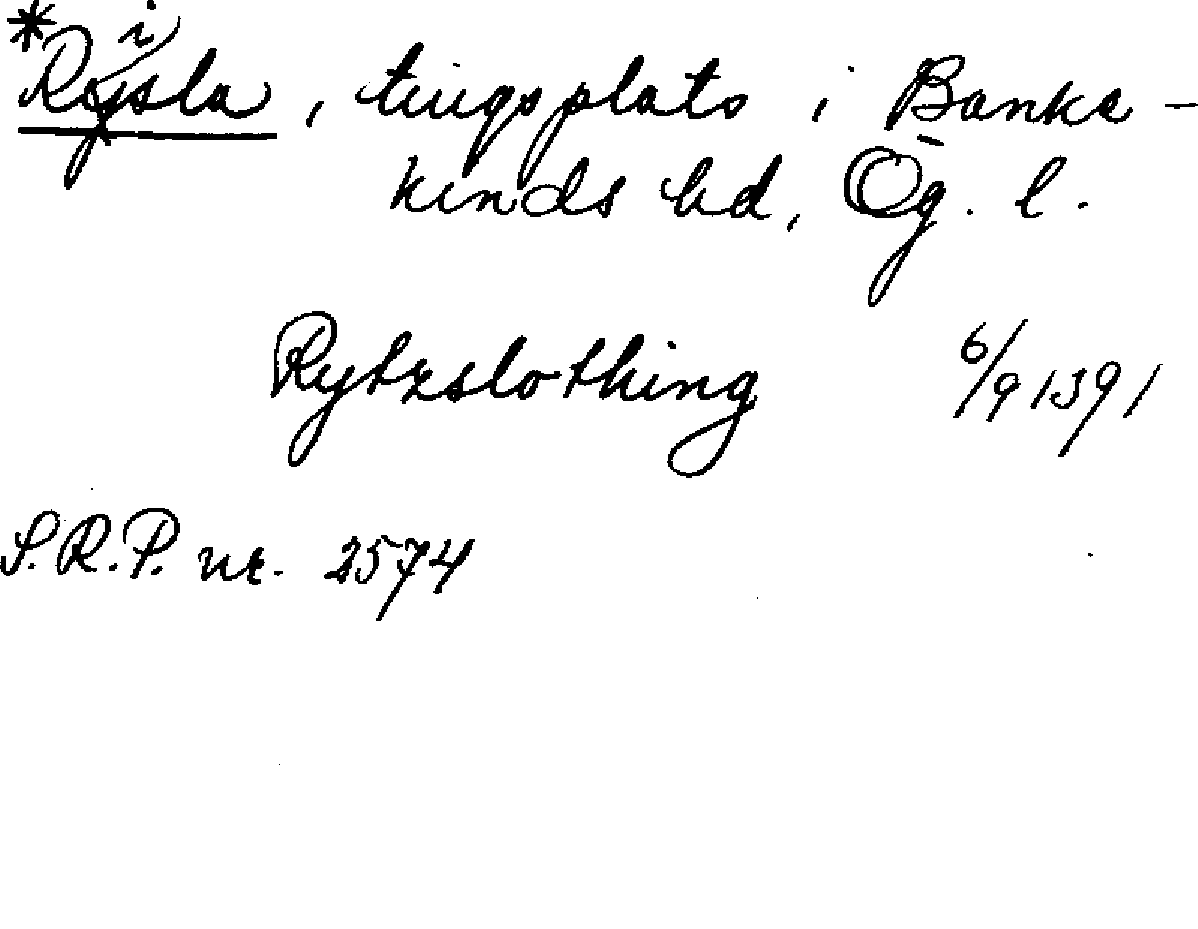 *Risla, tingsplats i Banke-
kinds hd, Ög. l.
Rytzslothing 6/9 1391
S.R.P. nr. 2574